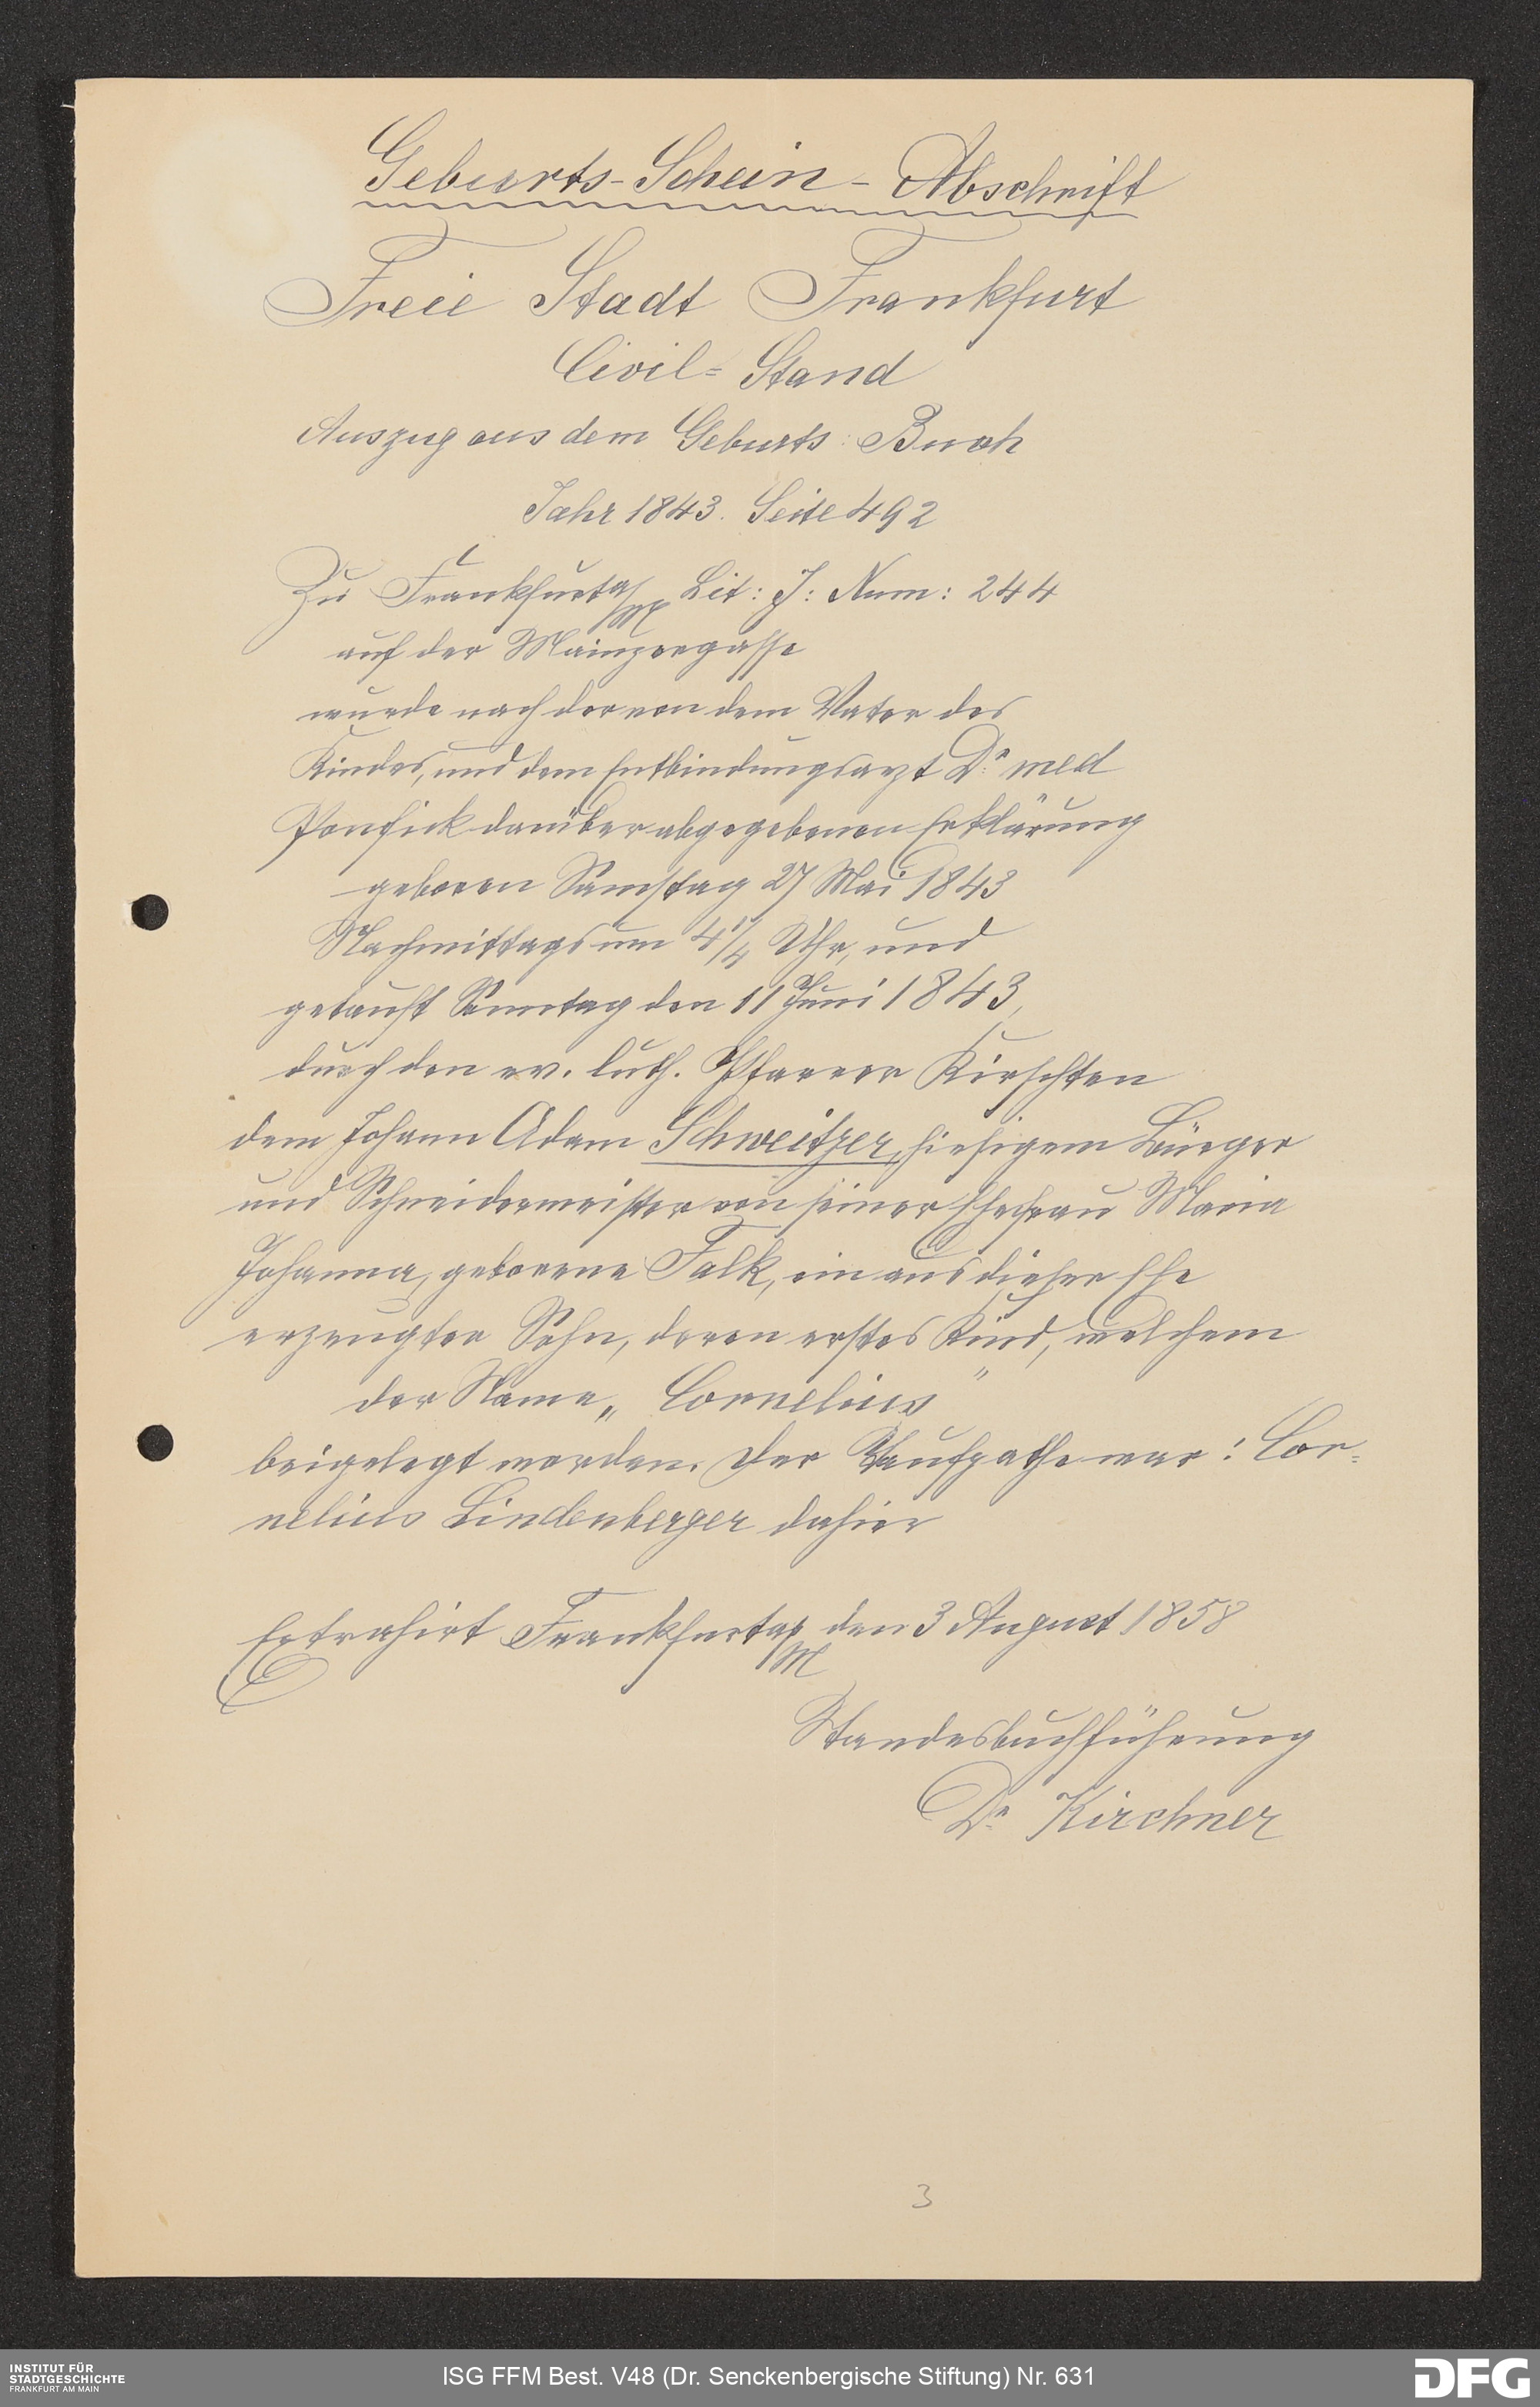 Geburts-Schein-Abschrift
Freie Stadt Frankfurt
Civil=Stand
Auszug aus dem Geburts: Buch
Jahr 1843. Seite 492
Zu Frankfurt a/M Lit: J: Num: 244
auf der Mainzergasse
wurde nach der von dem Vater des
Kindes, und dem Entbindungsarzt Dr. med
Ponfick darüber abgegebenen Erklärung
geboren Samstag 27 Mai 1843
Nachmittags um 4 1/4 Uhr, und
getauft Sonntag den 11 Juni 1843,
durch den ev. luth. Pfarrer Kirschten
dem Johann Adam Schweitzer, hiesigem Bürger
und Schneidermeister von seiner Ehefrau Maria
Johanna, geborene Falk, ein aus dieser Ehe
erzeugter Sohn, deren erstes Kind, welchem
der Name „Cornelius"
beigelegt worden. Der Taufpathe war: Cor=
nelius Lindenberger dahier
Extrahirt Frankfurt a/M den 3 August 1858
Standesbuchführung
Dr. Kirchner
3
INSTITUT FÜR
STADTGESCHICHTE
FRANKFURT AM MAIN
ISG FFM Best. V48 (Dr. Senckenbergische Stiftung) Nr. 631
DFG